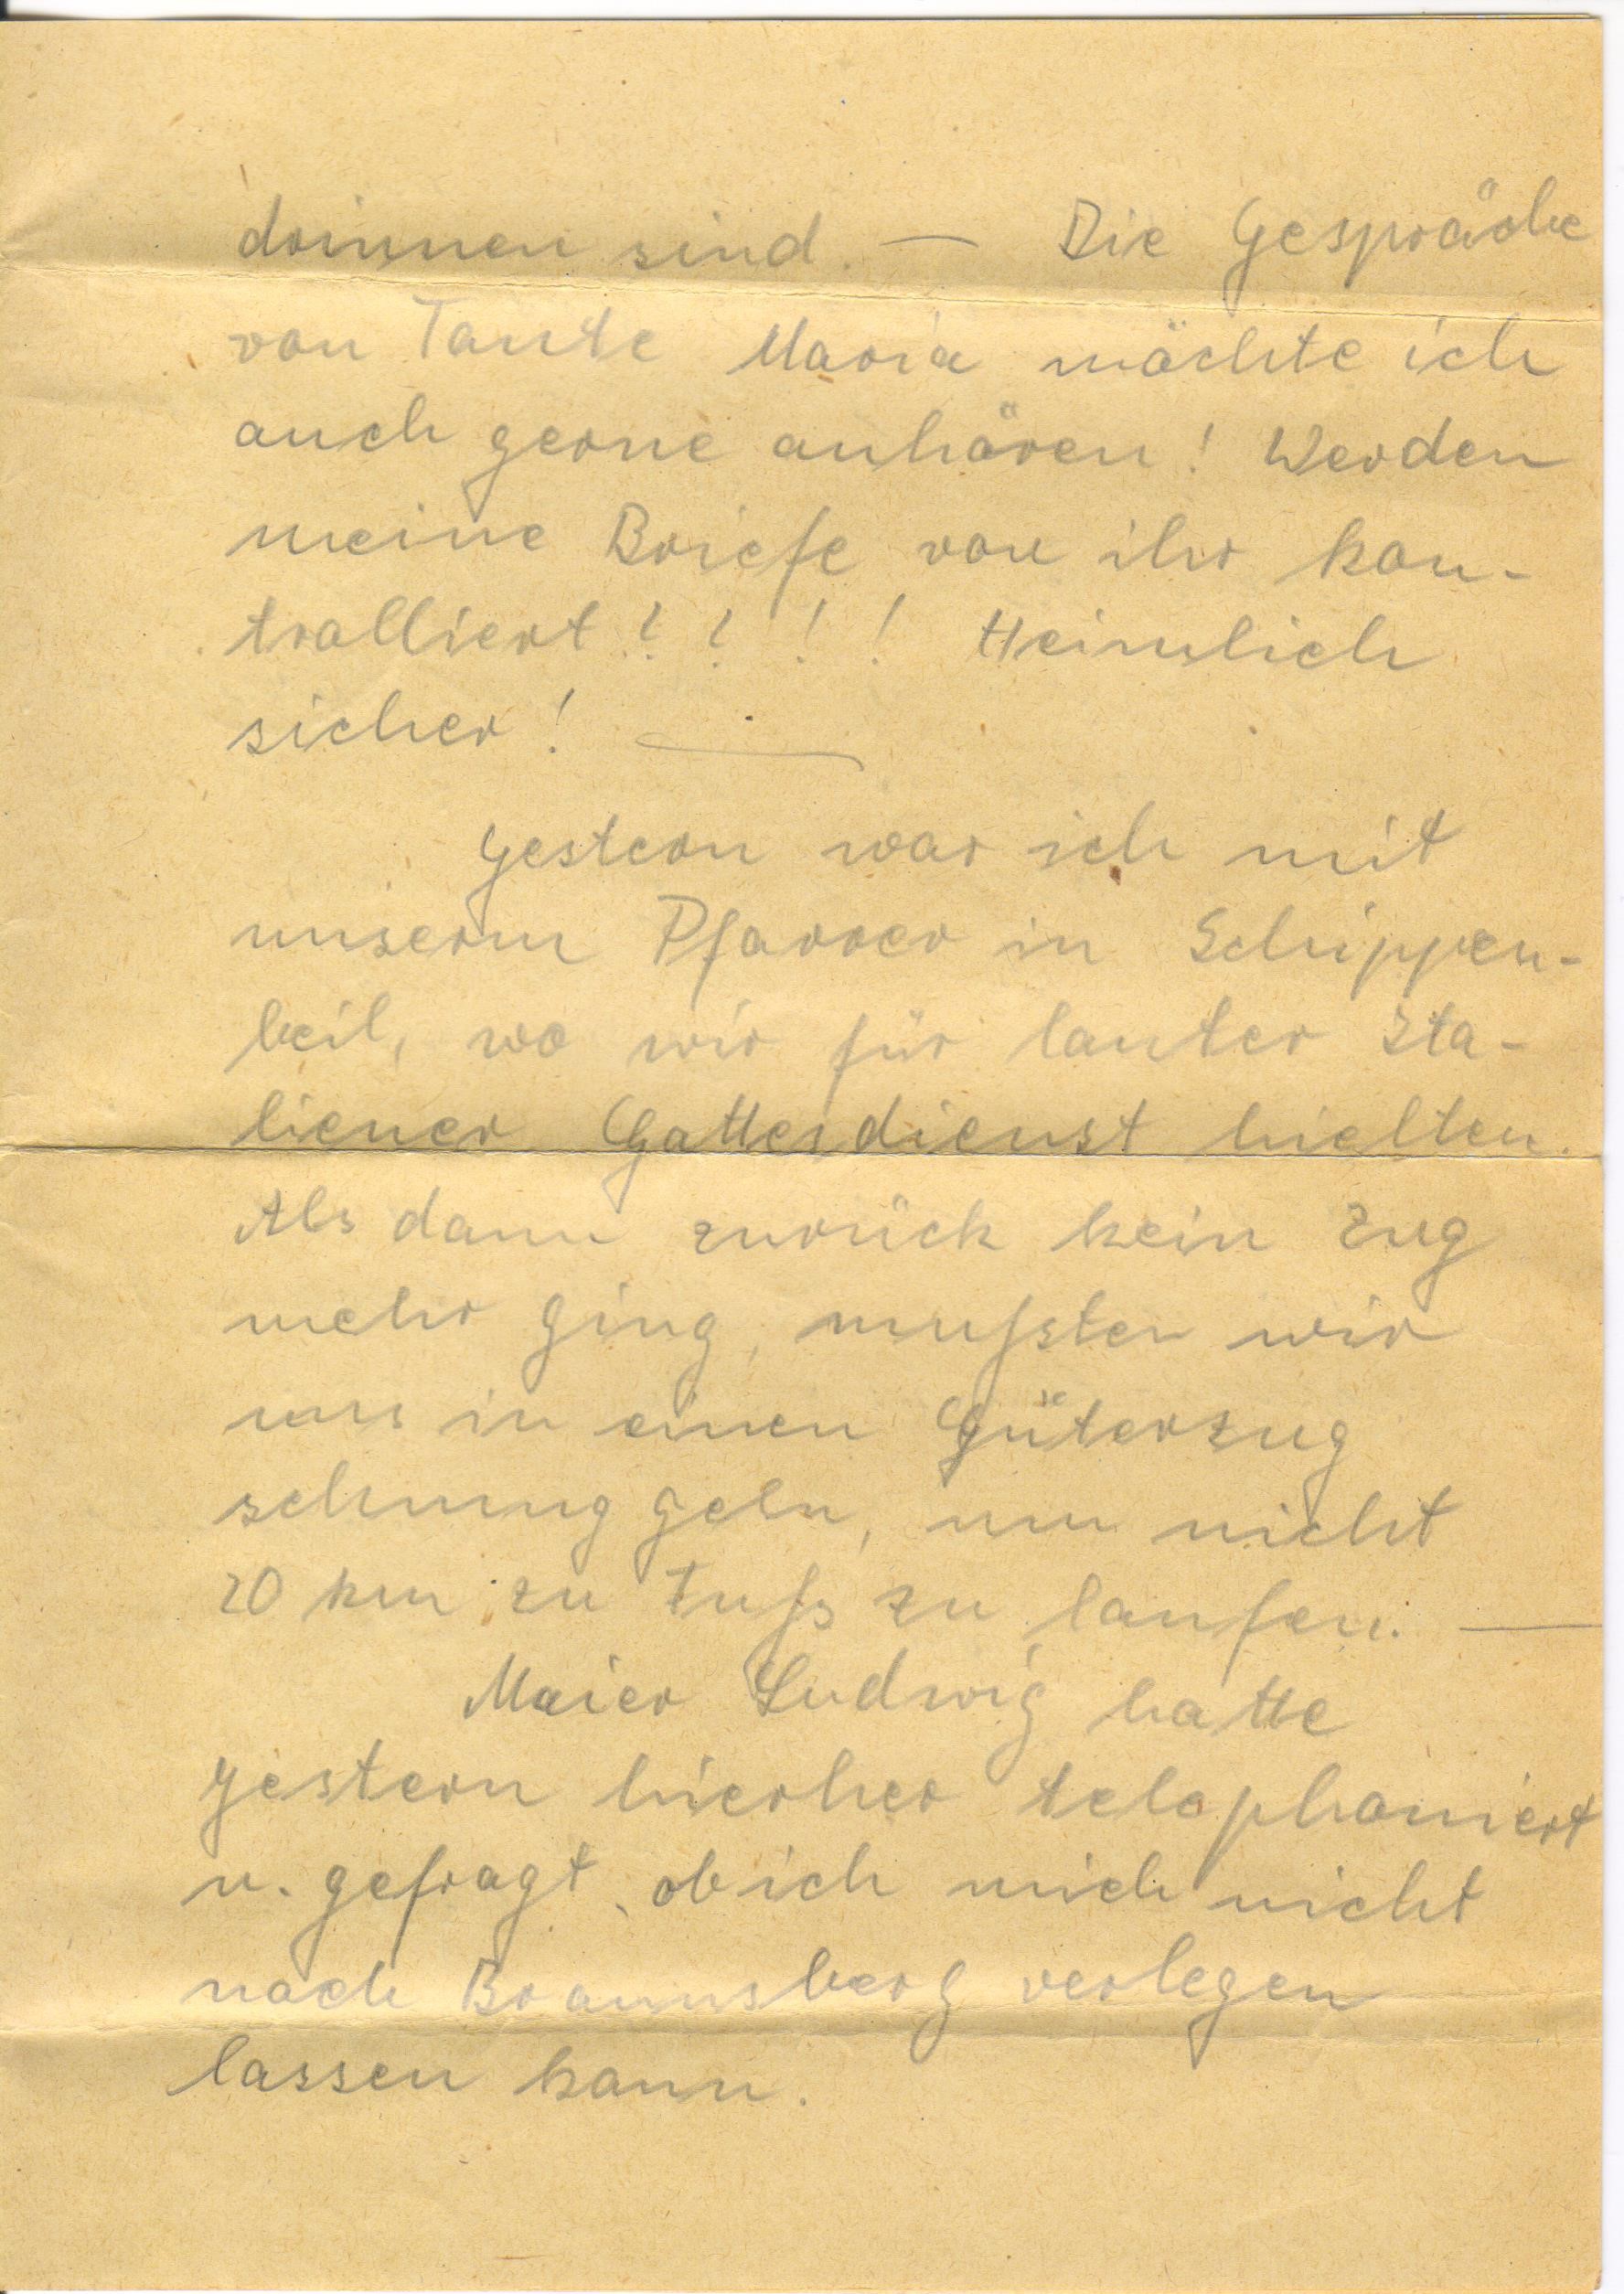 drinnen sind. — Die Gespräche
von Tante Maria möchte ich
auch gerne anhören! Werden
meine Briefe von ihr kon-
trolliert?? !! Heimlich
sicher! —
Gestern war ich mit
unserm Pfarrer in Schippen-
beil, wo wir für lauter Ita-
liener Gottesdienst hielten.
Als dann zurück kein Zug
mehr ging, mußten wir
uns in einen Güterzug
schmuggeln, um nicht
20 km zu Fuß zu laufen. —
Maier Ludwig hatte
gestern hierher telephoniert
u. gefragt, ob ich mich nicht
nach Braunsberg verlegen
lassen kann.